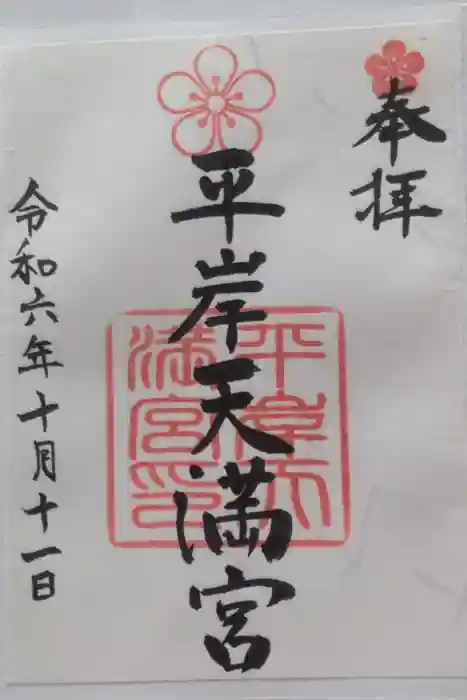 奉拝
平岸天満宮
平岸天満宮印
令和六年十月十一日